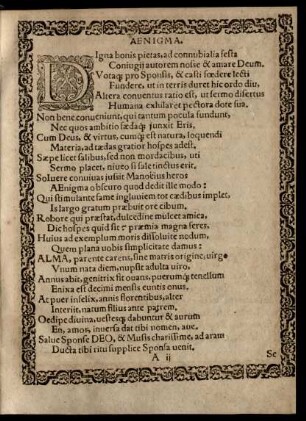 AENIGMA.
DIgna bonis pietas, ad connubialia festa
Coniugii autorem nosse & amare Deum.
Votaq; pro Sponsis, & casti fœdere lecti
Fundere, ut in terris duret hic ordo diu,
Altera conuentus ratio est, ut sermo disertus
Humana exhilaret pectora dote sua.
Non bene conueniunt, qui tantum pocula fundunt,
Nec quos ambitio fædaq; junxit Eris,
Cum Deus, & virtus, cumq; est natura, loquendi
Materia, ad tædas gratior hospes adest,
Sæpe licet salibus, sed non mordacibus, uti
Sermo placet, niueo si sale tinctus erit,
Soluere conuiuas jussit Manoëius heros
AEnigma obscuro quod dedit ille modo:
Qui stimulante fame ingluuiem tot cædibus implet,
Is largo gratum præbuit ore cibum,
Robore qui præstat, dulcedine mulcet amica,
Dic hospes quid sit præmia magna feres,
Huius ad exemplum moris dissoluite nodum,
Quem plana uobis simplicitate damus:
ALMA, parente carens, sine matris origine, uirgo
Vnum nata diem, nupsit adulta uiro.
Annus abit, genitrix fit ouans, puerumq; tenellum
Enixa est decimi mensis euntis onus.
At puer infelix, annis florentibus, alter
Interiit, natum filius ante patrem,
Oedipe diuina, uestesq; dabuntur & aurum
En, amos, inuersa dat tibi nomen, aue.
Salue Sponse DEO, & Musis charissime, ad aram
Ducta tibi ritu supplice Sponsa uenit.
A ii
Se